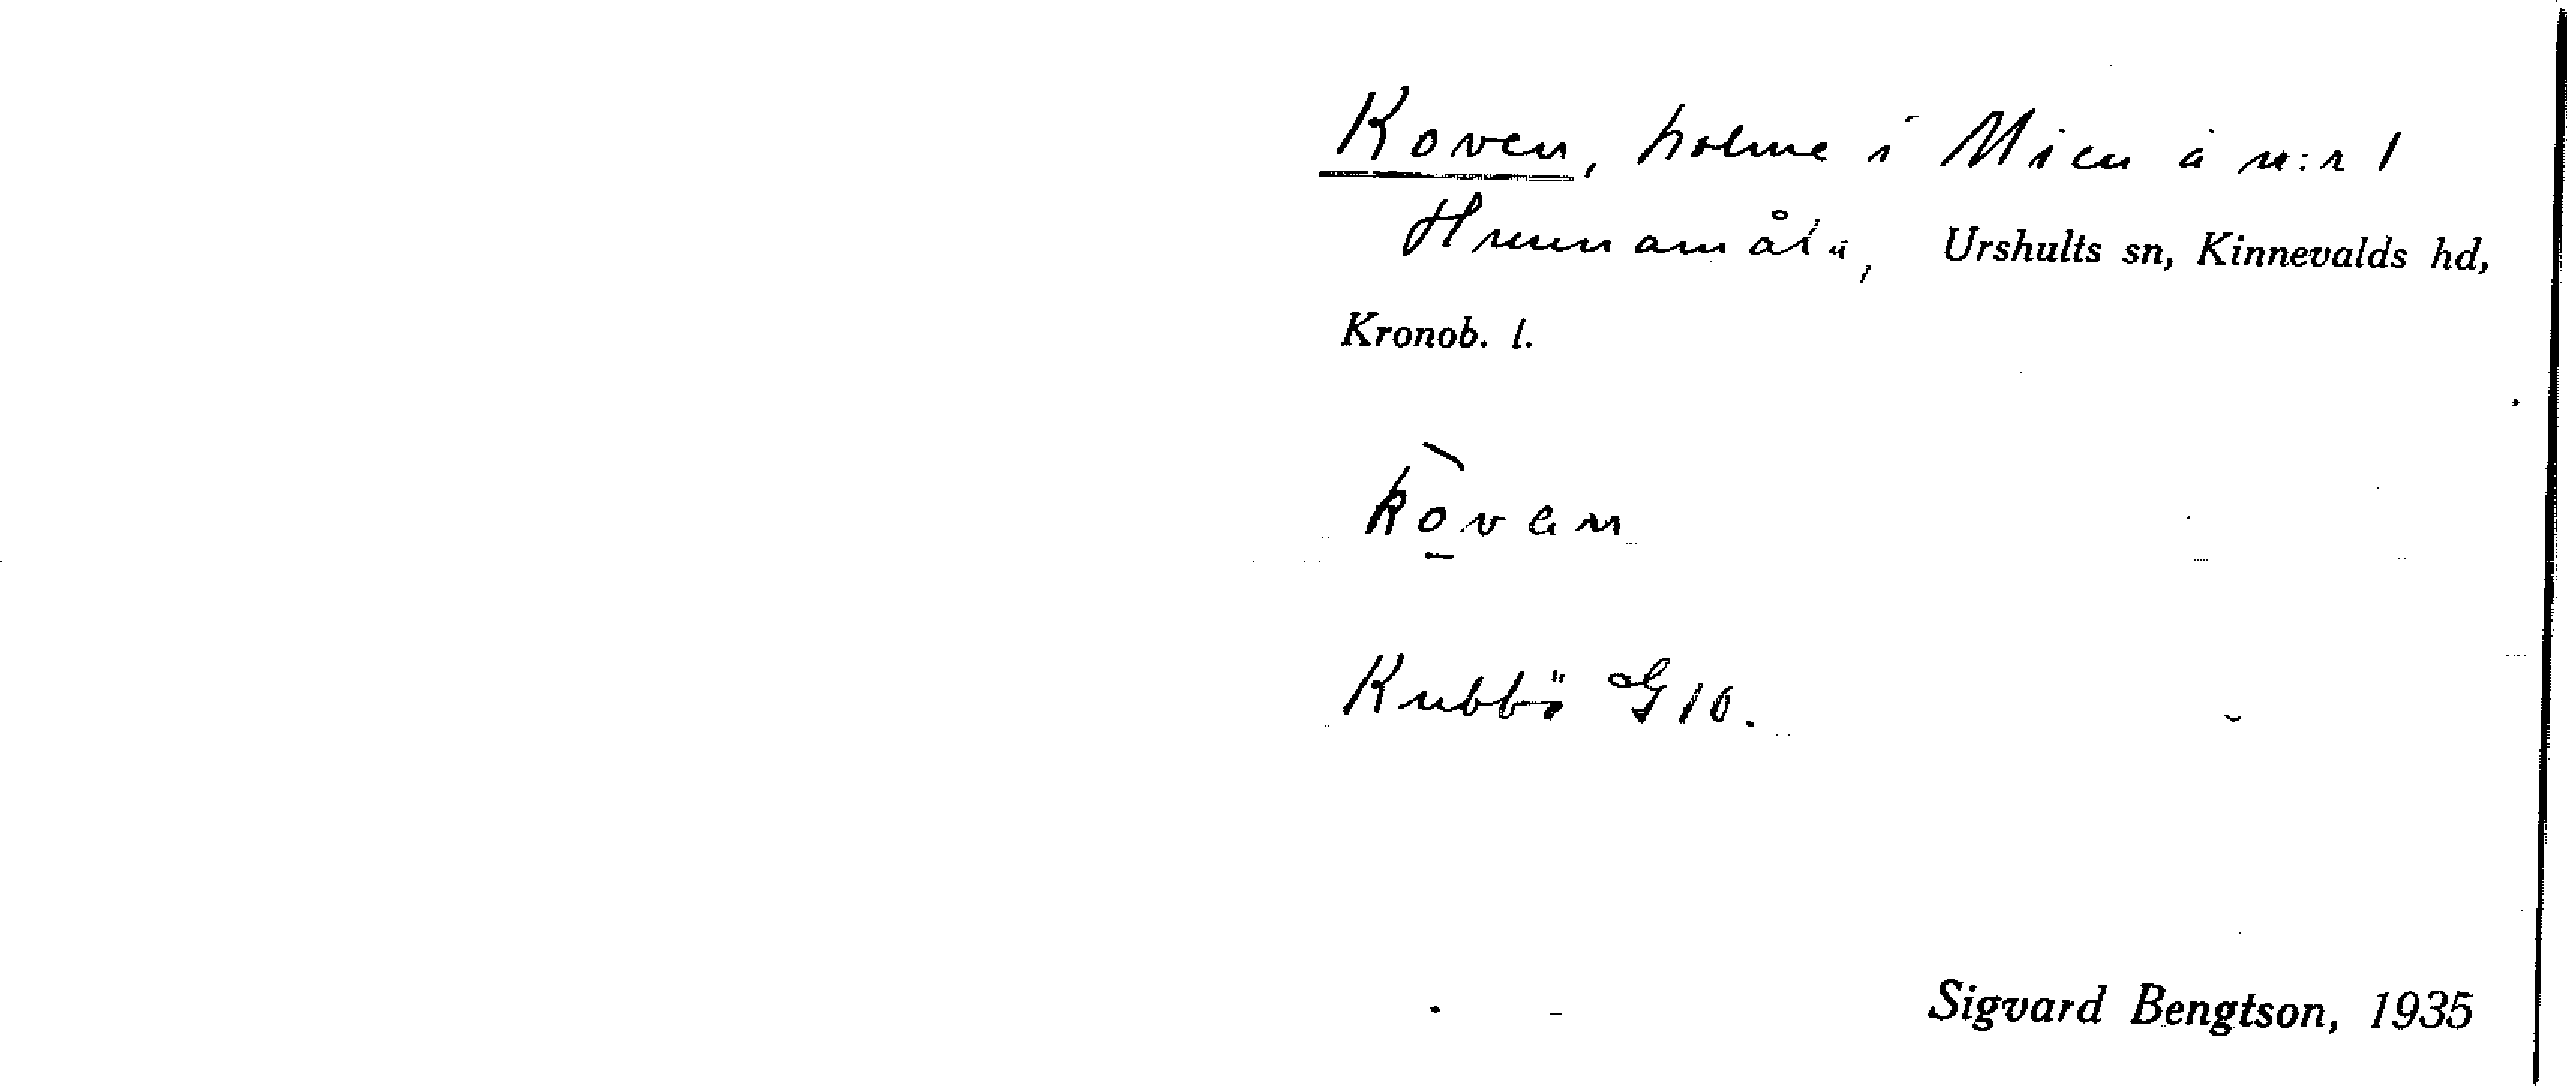 Koven, holme i Mien å n:r 1
Hunnamåla, Urshults sn, Kinnevalds hd,
Kronob. l.
kòven
Kubbö G10.
Sigvard Bengtson, 1935